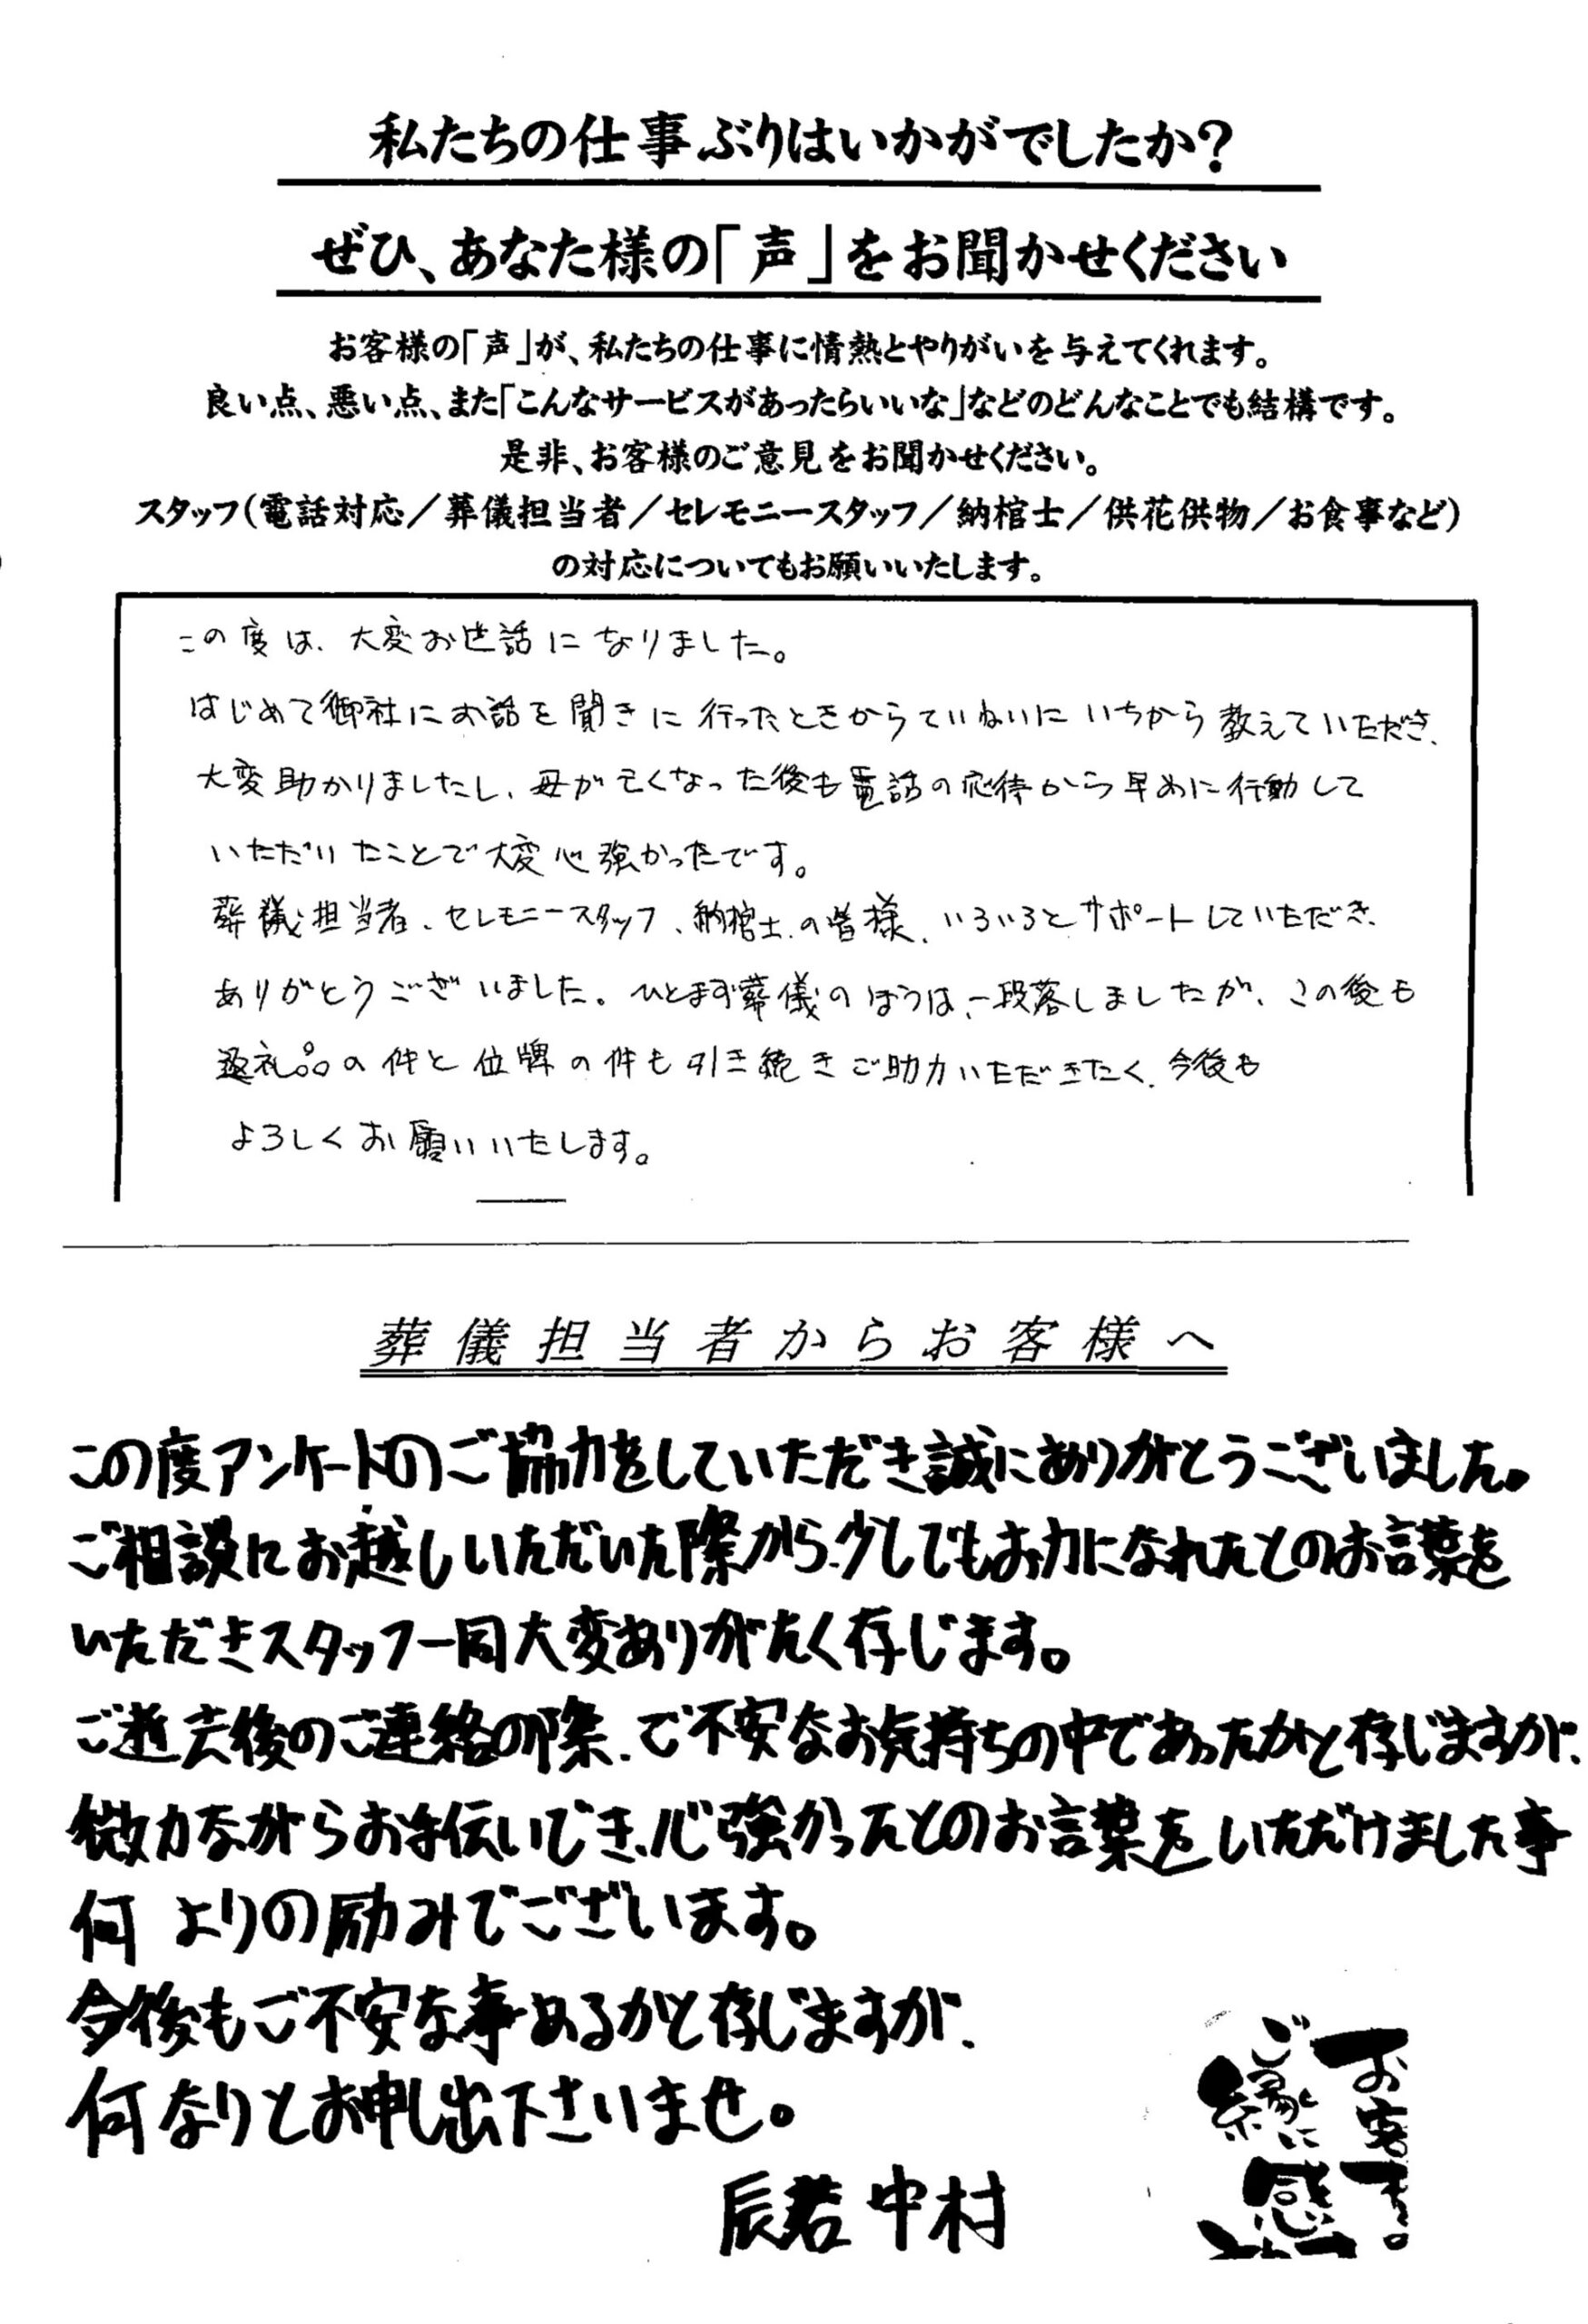 私たちの仕事ぶりはいかがでしたか？
ぜひ、あなた様の「声」をお聞かせください
お客様の「声」が、私たちの仕事に情熱とやりがいを与えてくれます。
良い点、悪い点、また「こんなサービスがあったらいいな」などのどんなことでも結構です。
是非、お客様のご意見をお聞かせください。
スタッフ（電話対応／葬儀担当者／セレモニースタッフ／納棺士／供花供物／お食事など）
の対応についてもお願いいたします。
この度は、大変お世話になりました。
はじめて御社にお話を聞きに行ったときからていねいにいちから教えていただき、
大変助かりましたし、母が亡くなった後も電話の応待から早めに行動して
いただいたことで大変心強かったです。
葬儀担当者、セレモニースタッフ、納棺士の皆様、いろいろとサポートしていただき、
ありがとうございました。ひとまず葬儀のほうは、一段落しましたが、この後も
返礼品の件と位牌の件も引き続きご助力いただきたく、今後も
よろしくお願いいたします。
葬儀担当者からお客様へ
この度アンケートのご協力をしていただき誠にありがとうございました。
ご相談にお越しいただいた際から、少しでもお力になれたとのお言葉を
いただきスタッフ一同大変ありがたく存じます。
ご逝去後のご連絡の際、ご不安なお気持ちの中であったかと存じますが、
微力ながらお手伝いでき、心強かったとのお言葉をいただけました事
何よりの励みでございます。
今後もご不安な事あるかと存じますが、
何なりとお申し出下さいませ。
中村
ご縁に
感